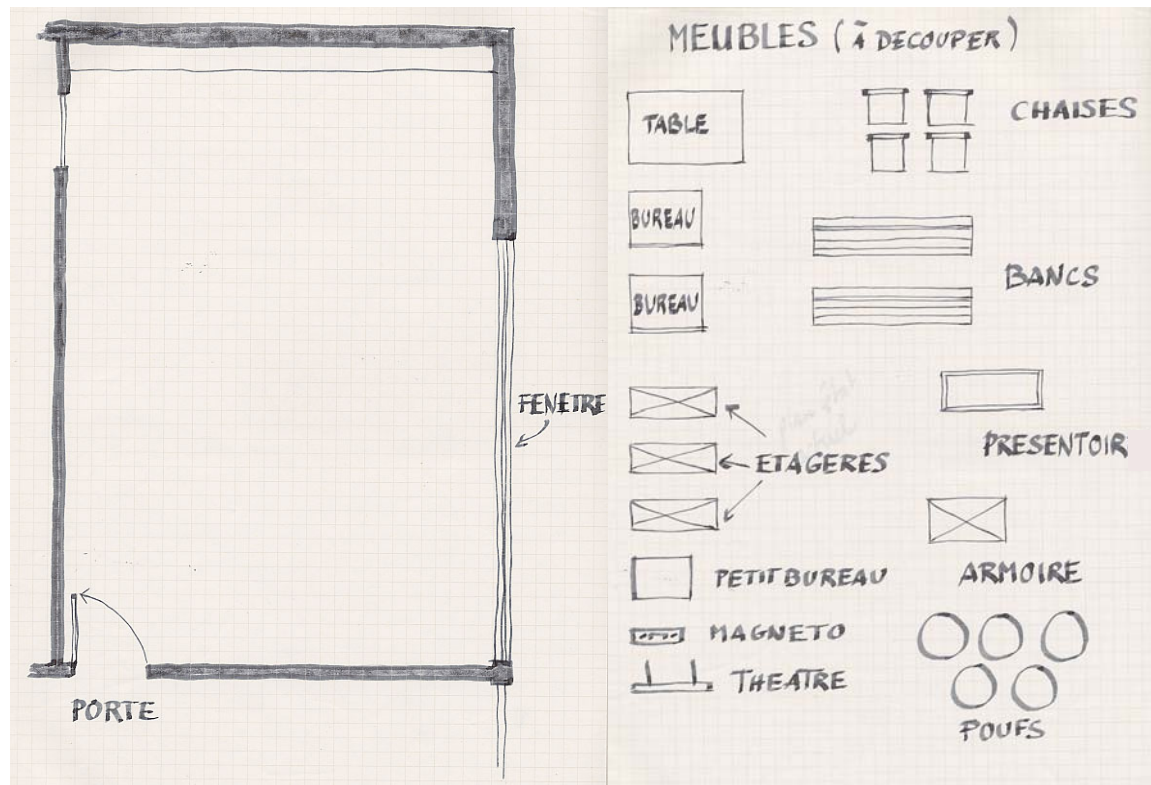 FENETRE
PORTE
MEUBLES (À DECOUPER)
TABLE
CHAISES
BUREAU
BUREAU
BANCS
ETAGERES
PRESENTOIR
PETIT BUREAU
ARMOIRE
MAGNETO
THEATRE
POUFS